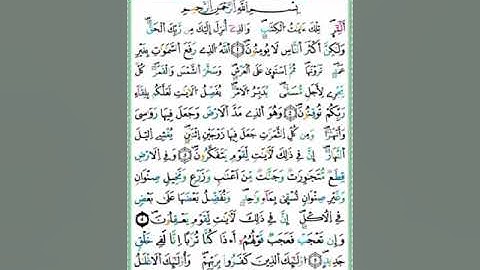 بسم الله الرحمن الرحيم
المر تلك ءايت الكتب والذى أنزل إليك من ربك الحق
ولكن أكثر الناس لا يومنون الله الذى رفع السموت بغير
عمد ترونها ثم استوى على العرش وسخر الشمس والقمر كل
يجرى لأجل مسمى يدبر الامر يفصل الايت لعلكم بلقاء
ربكم توقنون وهو الذى مد الارض وجعل فيها روسى
وأنهرا ومن كل الثمرت جعل فيها زوجين اثنين يغشى اليل
النهار إن فى ذلك لأيت لقوم يتفكرون وفى الارض
قطع متجورت وجنت من اعنب وزرع ونخيل صنوان
وغير صنوان تسقى بماء وحد ونفضل بعضها على بعض
فى الاكل إن فى ذلك لأيت لقوم يعقلون
وإن تعجب فعجب قولهم أ.ذا كنا تربا إنا لفى خلق
جديد اوليك الذين كفروا بربهم وأوليك الاغلل